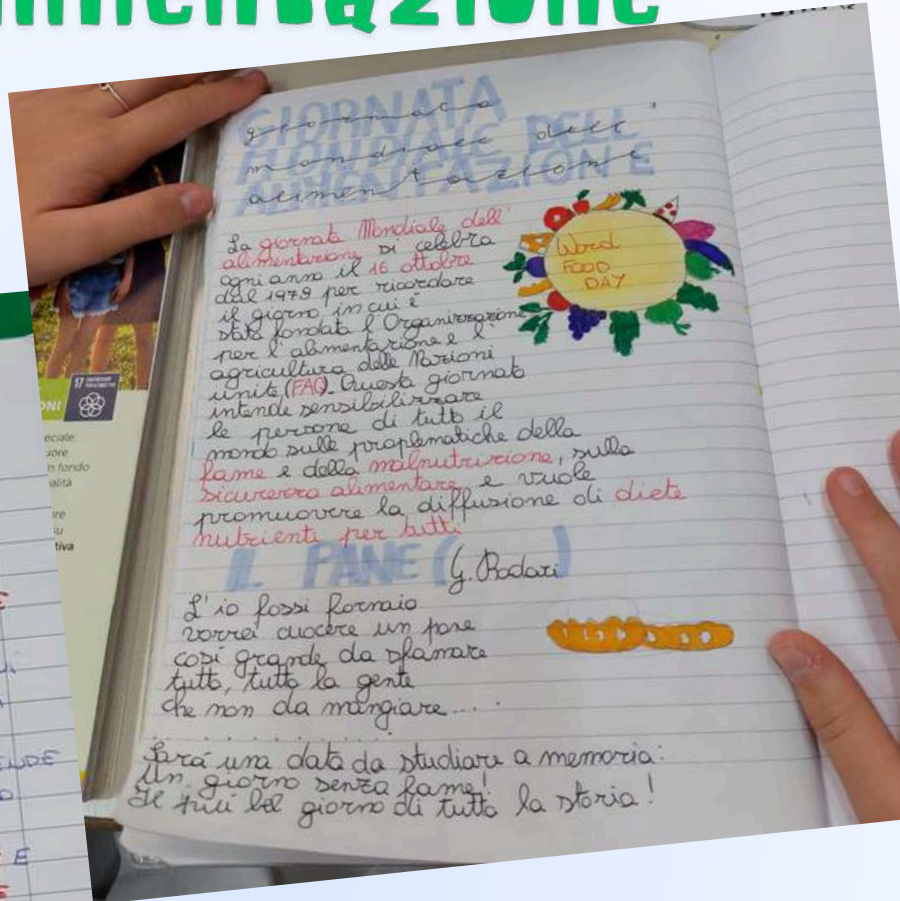 GIORNATA
MONDIALE DELL'
ALIMENTAZIONE
giornata
mondiale dell'
alimentazione
La giornata Mondiale dell'
alimentazione si celebra
ogni anno il 16 ottobre
dal 1979 per ricordare
il giorno in cui è
stata fondata l'Organizzazione
per l'alimentazione e l'
agricoltura delle Nazioni
unite (FAO). Questa giornata
intende sensibilizzare
le persone di tutto il
mondo sulle proplematiche della
fame e della malnutrizione, sulla
sicurezza alimentare e vuole
promuovere la diffusione di diete
nutrienti per tutti
Word
FOOD
DAY
IL PANE (G. Rodari)
S'io fossi fornaio
vorrei cuocere un pane
così grande da sfamare
tutta, tutta la gente
che non da mangiare....
Sará una data da studiare a memoria:
Un giorno senza fame!
Il più bel giorno di tutta la storia!
17
ONI
eciale:
uore
n fondo
alità
tiva